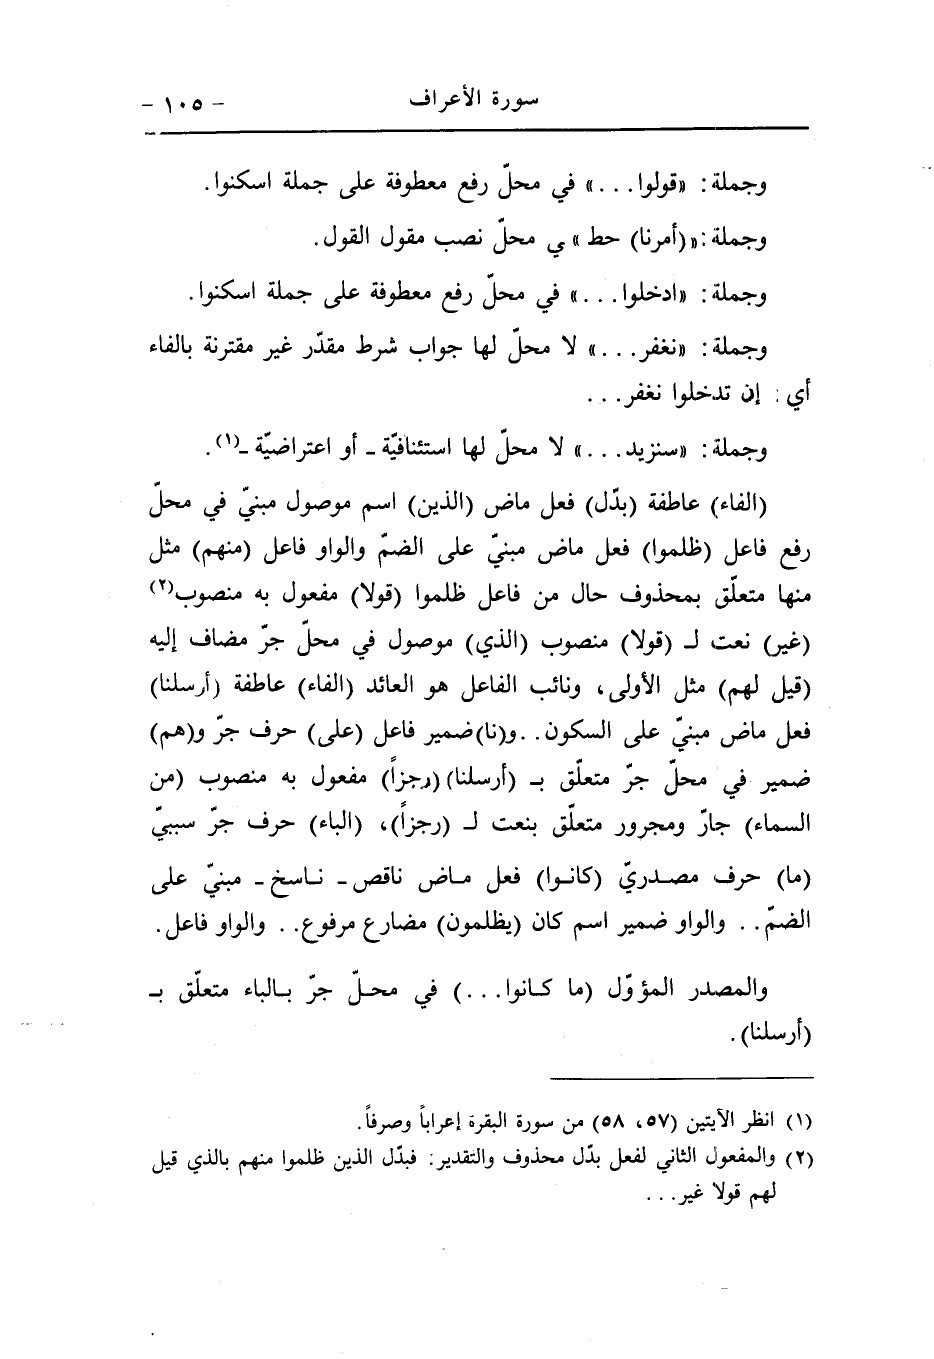 سورة الأعراف - ١٠٥ -
وجملة: «قولوا...» في محلّ رفع معطوفة على جملة اسكنوا.
وجملة:«(أمرنا) حط» ي محلّ نصب مقول القول.
وجملة: «ادخلوا...» في محلّ رفع معطوفة على جملة اسكنوا.
وجملة: «نغفر...» لا محلّ لها جواب شرط مقدّر غير مقترنة بالفاء
أي: إن تدخلوا نغفر...
وجملة: «سنزيد...» لا محلّ لها استئنافيّة - أو اعتراضيّة -(١).
(الفاء) عاطفة (بدّل) فعل ماض (الذين) اسم موصول مبنيّ في محلّ
رفع فاعل (ظلموا) فعل ماض مبنيّ على الضمّ والواو فاعل (منهم) مثل
منها متعلّق بمحذوف حال من فاعل ظلموا (قولا) مفعول به منصوب(٢)
(غير) نعت لـ (قولا) منصوب (الذي) موصول في محلّ جرّ مضاف إليه
(قيل لهم) مثل الأولى، ونائب الفاعل هو العائد (الفاء) عاطفة (أرسلنا)
فعل ماض مبنيّ على السكون..و(نا)ضمير فاعل (على) حرف جرّ و(هم)
ضمير في محلّ جرّ متعلّق بـ (أرسلنا)(رجزاً) مفعول به منصوب (من
السماء) جارّ ومجرور متعلّق بنعت لـ (رجزاً)، (الباء) حرف جرّ سببيّ
(ما) حرف مصدريّ (كانوا) فعل ماض ناقص - ناسخ - مبنيّ على
الضمّ.. والواو ضمير اسم كان (يظلمون) مضارع مرفوع.. والواو فاعل.
والمصدر المؤوّل (ما كانوا...) في محلّ جرّ بالباء متعلّق بـ
(أرسلنا).
(١) انظر الآيتين (٥٧، ٥٨) من سورة البقرة إعراباً وصرفاً.
(٢) والمفعول الثاني لفعل بدّل محذوف والتقدير: فبدّل الذين ظلموا منهم بالذي قيل
لهم قولا غير...